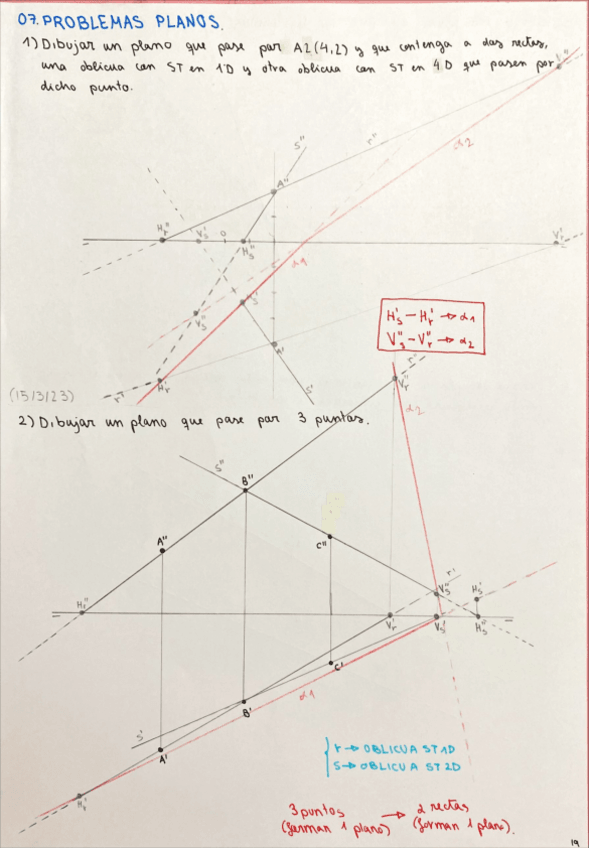 07. PROBLEMAS PLANOS.
1) Dibujar un plano que pase por A2(4,2) y que contenga a dos rectas,
una oblicua con ST en 1D y otra oblicua con ST en 4D que pasen por
dicho punto.
V''r
s''
r''
α2
A''
H''r
V's
0
H''s
V'r
α1
H's
V''s
H's — H'r → α1
V''s — V''r → α2
A'
H'r
r'
s'
(15/3/23)
2) Dibujar un plano que pase por 3 puntos.
r''
V''r
α2
s''
B''
A''
C''
r'
H''r
V''s
H's
V'r
V's
H''s
C'
α1
B'
s'
A'
r → OBLICUA ST1D
s → OBLICUA ST2D
H'r
3 puntos → 2 rectas
(forman 1 plano) (forman 1 plano).
19